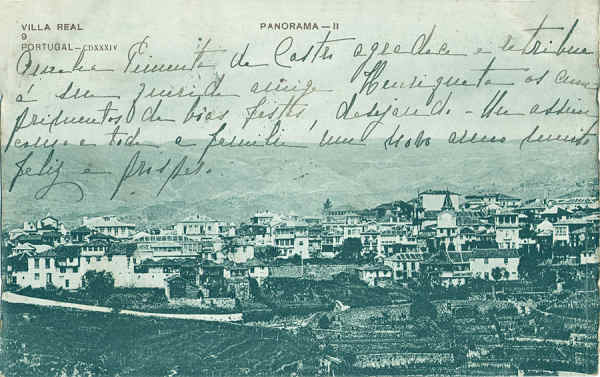 VILLA REAL
9
PORTUGAL—CDXXXIV
PANORAMA—II
Pimenta de Castro agradece e retribue
á sua querida amiga Henriqueta os cum
primentos de bôas festas, desejando-lhe assim
como a toda a familia um novo anno muito
feliz e prospero.